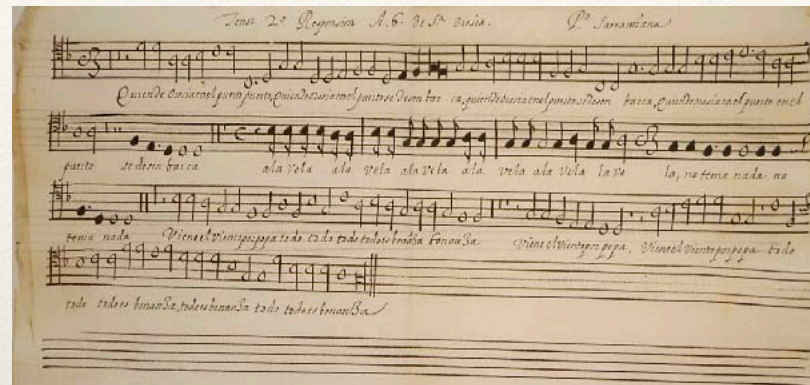 Tenor 2º Responsion A. 6. De Sta Orosia. Po Larramzana
Quien de Orosia en el puerto puerto, quien de Orosia en el puerto se desembarca, quien de Orosia en el puerto se desem barca, quien de Orosia en el puerto en el
puerto se desembarca a la vela a la vela a la vela a la vela a la vela la ve la, no tema nada no
tema nada Viene el viento por popa todo todo todo todo es bonanza bonanza Viene el viento por popa. Viene el viento por popa todo
todo todo es bonanza, todo es bonanza todo todo es bonanza